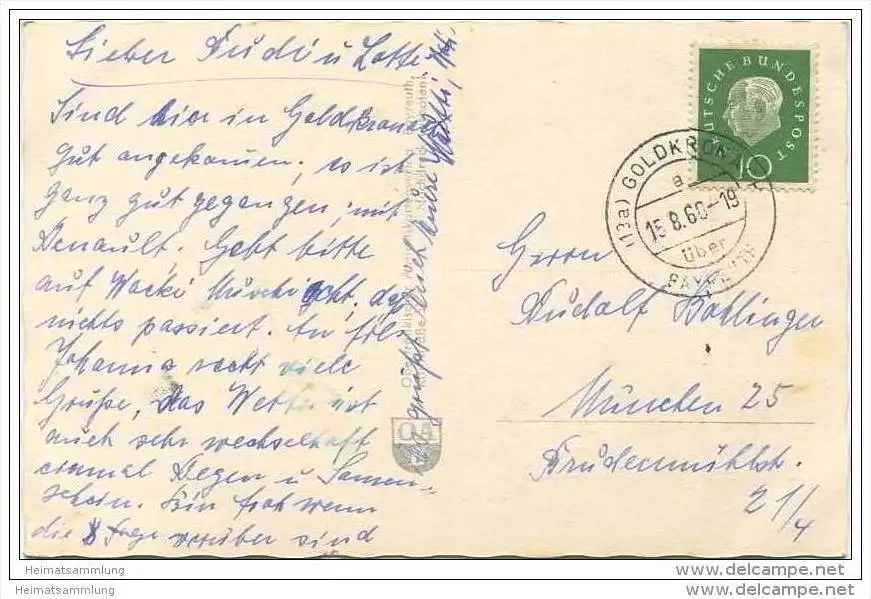 Lieber Rudi u Lotte
Sind hier in Goldkronach
gut angekommen, es ist
ganz gut gegangen, mit
Renault. Gebt bitte
auf Wacki Muschi acht, daß
nichts passiert. An Frl.
Johanna recht viele
Grüße, Das Wetter ist
auch sehr wechselhaft
einmal Regen u Sonnen-
schein. Bin froh wenn
die 8 Tage vorüber sind
grüßt Euch Eure
DEUTSCHE BUNDESPOST
10
(13a) GOLDKRONACH
a
15.8.60-19
über
BAYREUTH
Herrn
Rudolf Bollinger
München 25
Brudermühlstr.
21/4
Heimatsammlung
Heimatsammlung
www.delcampe.net
www.delcampe.net